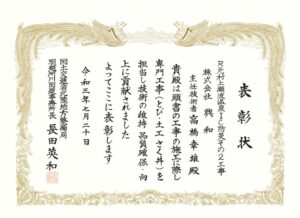 表彰状
R元村上瀬波温泉IC防災その2工事
株式会社 興和
主任技術者 高橋幸雄殿
貴殿は頭書の工事の施工に際し
専門工事(とび・土工・さく井)を
担当し技術の維持・品質確保・向
上に貢献されました
よってここに表彰します
令和三年七月二十日
国土交通省北陸地方整備局
羽越河川国道事務所長 長田英和